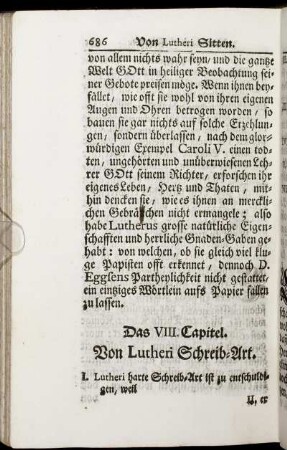 686 Von Lutheri Sitten.
von allem nichts wahr seyn, und die gantze
Welt GOtt in heiliger Beobachtung sei-
ner Gebote preisen möge. Wenn ihnen bey-
fället, wie offt sie wohl von ihren eigenen
Augen und Ohren betrogen worden, so
bauen sie gar nichts auf solche Erzehlun-
gen, sondern überlassen, nach dem glor-
würdigen Exempel Caroli V. einen tod-
ten, ungehörten und unüberwiesenen Leh-
rer GOtt seinem Richter, erforschen ihr
eigenes Leben, Hertz und Thaten, mit-
hin dencken sie, wie es ihnen an merckli-
chen Gebrächen nicht ermangele; also
habe Lutherus grosse natürliche Eigen-
schafften und herrliche Gnaden-Gaben ge-
habt: von welchen, ob sie gleich viel klu-
ge Papisten offt erkennet, dennoch D.
Eggsens Partheylichkeit nicht gestattet,
ein eintziges Wörtlein aufs Papier fallen
zu lassen.
Das VIII. Capitel.
Von Lutheri Schreib-Art.
I. Lutheri harte Schreib-Art ist zu entschuldi-
gen, weil
II. er